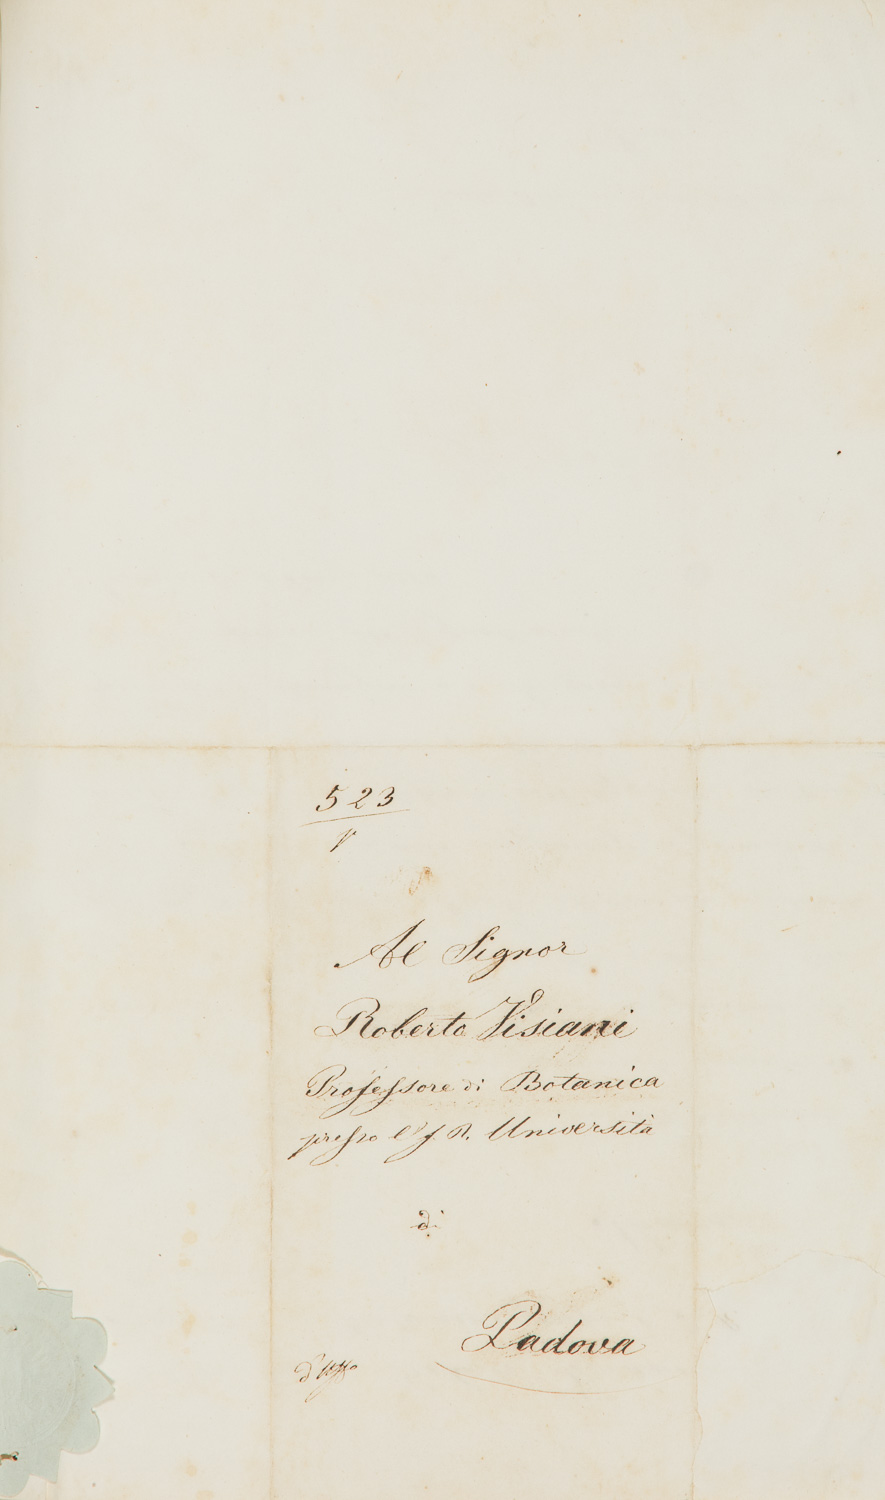 523
p
Al Signor
Roberto Visiani
Professore di Botanica
presso l'J. R. Università
di
Padova
d'Uffo